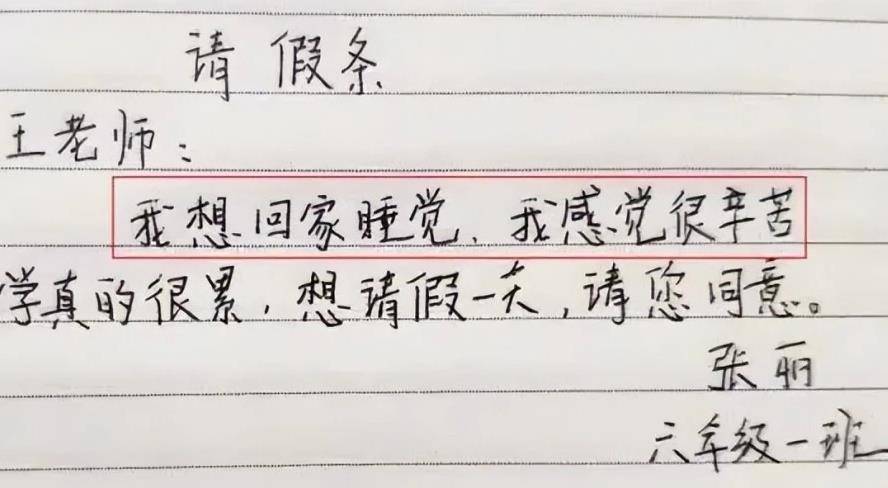 请假条
王老师:
我想回家睡觉,我感觉很辛苦
学真的很累,想请假一天,请您同意。
张丽
六年级一班